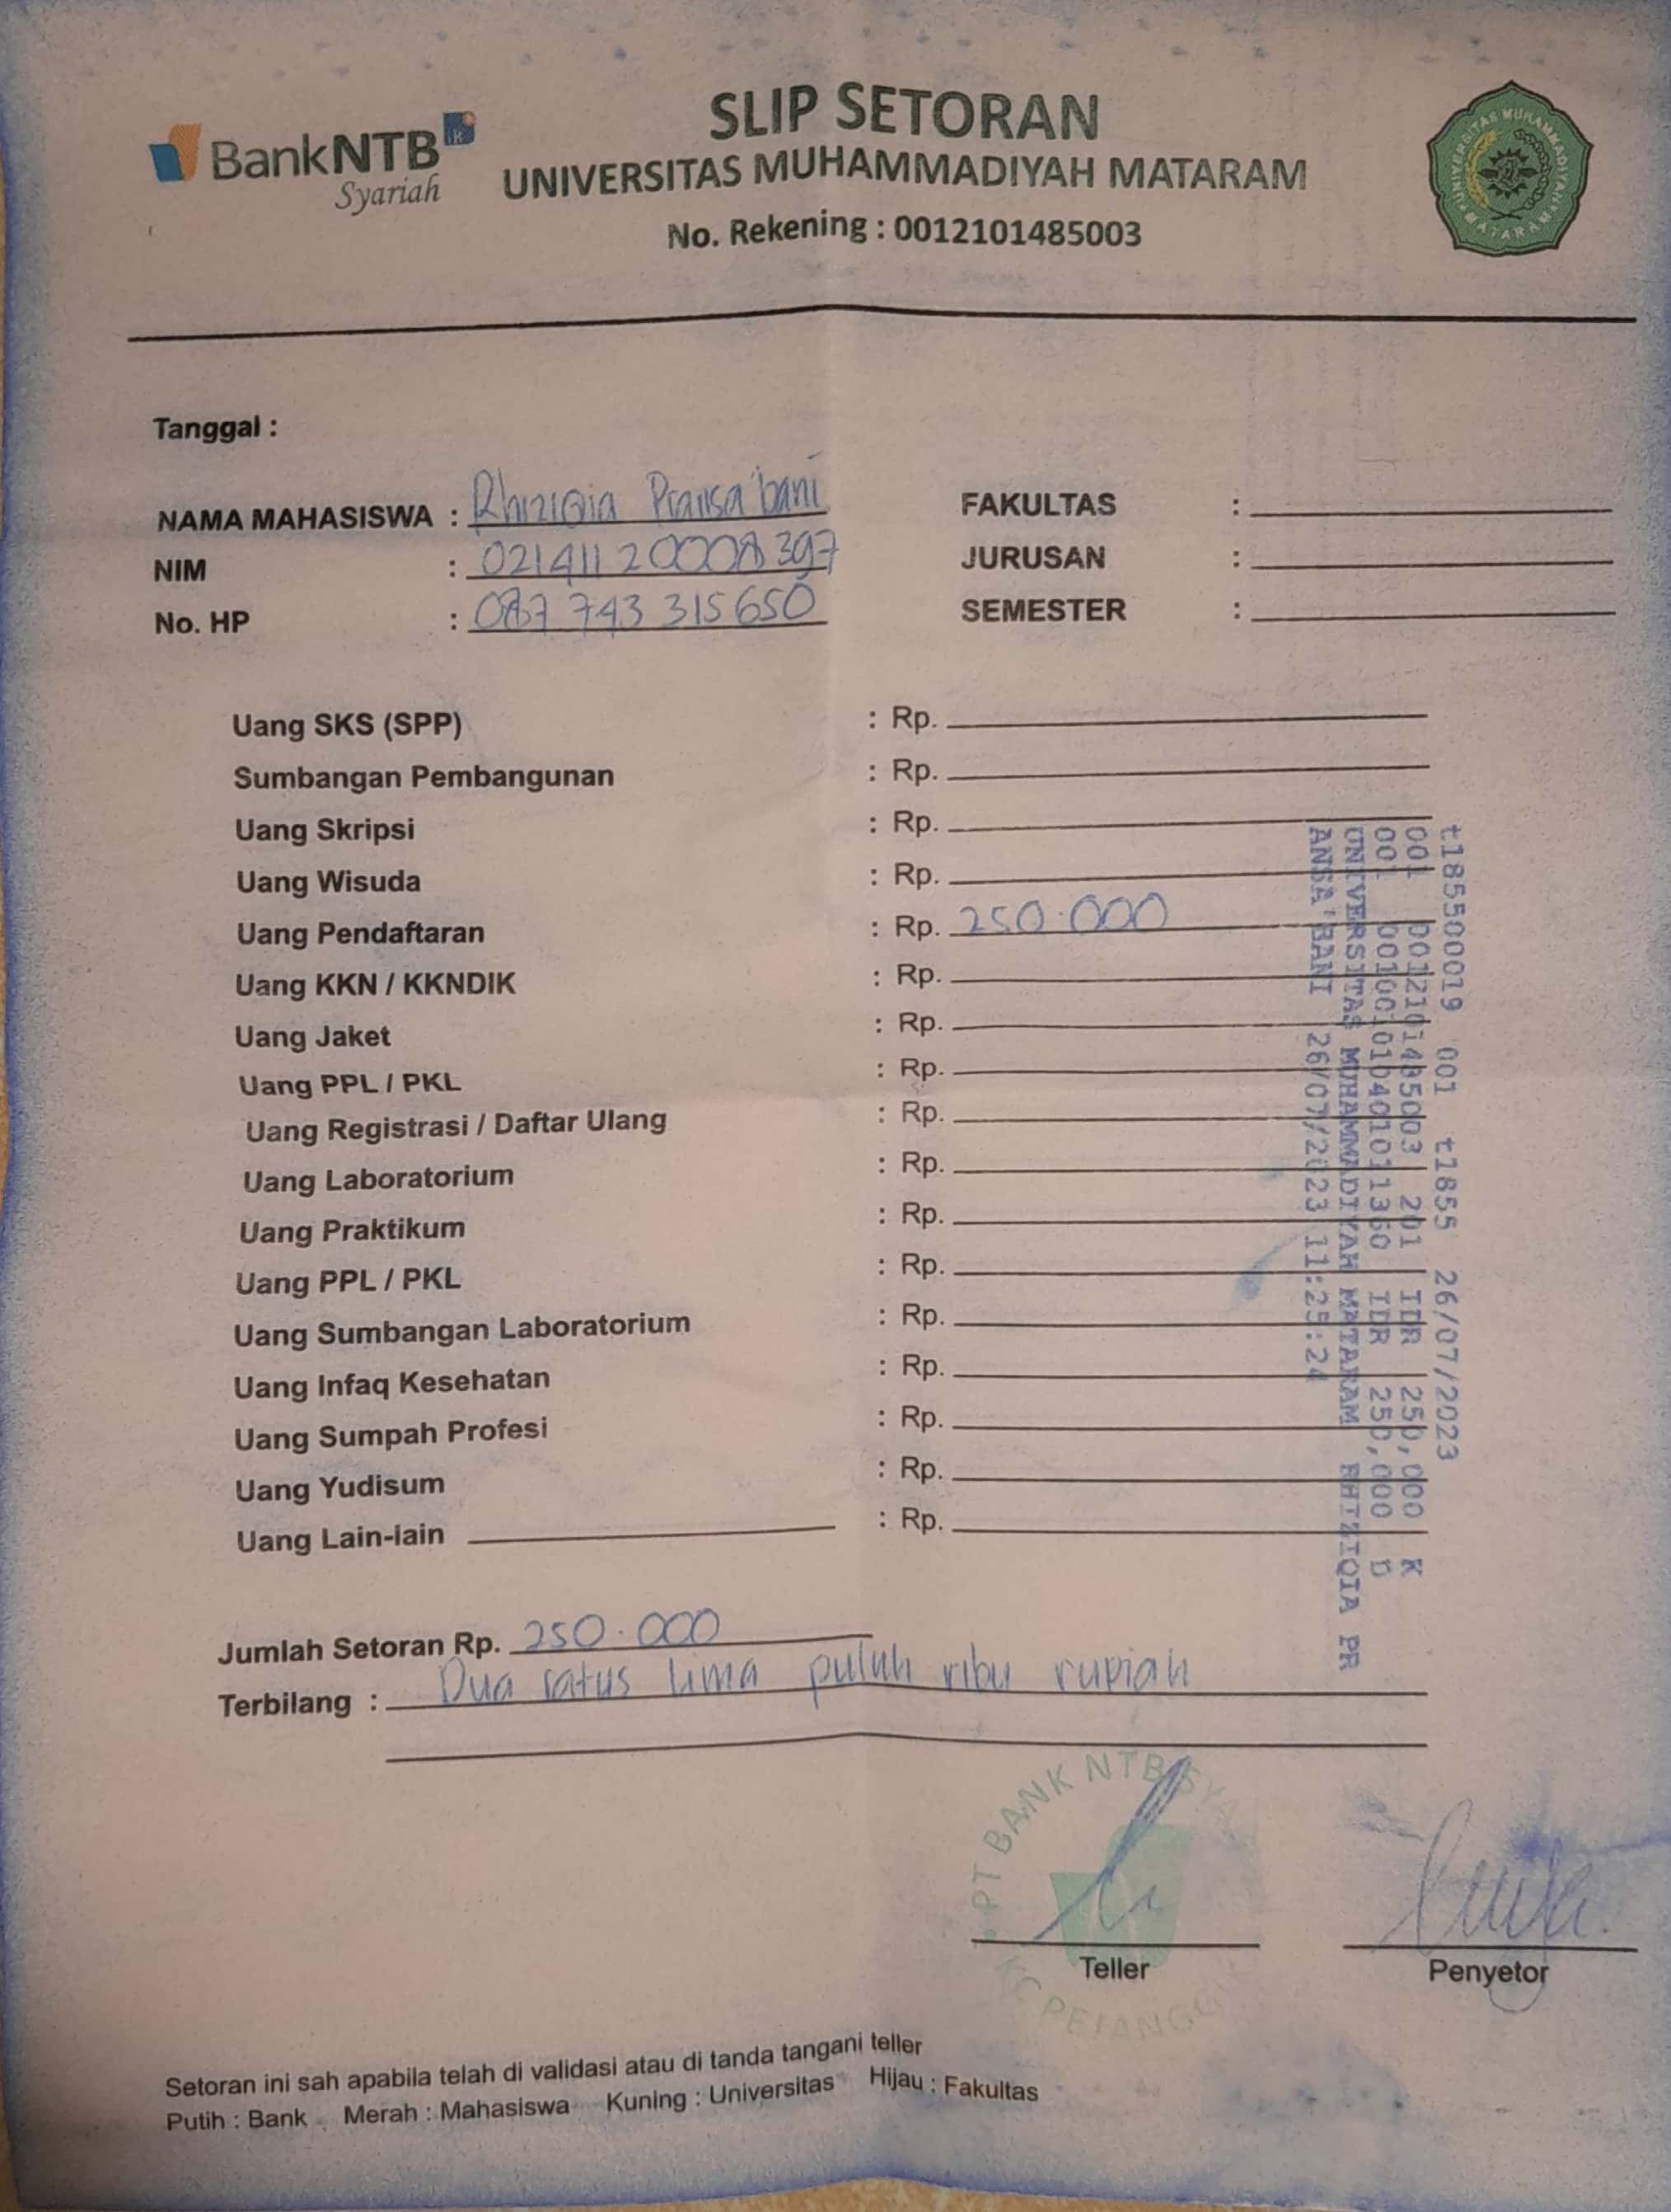 BankNTB
Syariah
SLIP SETORAN
UNIVERSITAS MUHAMMADIYAH MATARAM
No. Rekening : 0012101485003
UNIVERSITAS MUHAMMADIYAH MATARAM
Tanggal :
NAMA MAHASISWA : Rhiziqia Pransa'bani
NIM : 02141120008397
No. HP : 087 743 315650
FAKULTAS :
JURUSAN :
SEMESTER :
Uang SKS (SPP) : Rp.
Sumbangan Pembangunan : Rp.
Uang Skripsi : Rp.
Uang Wisuda : Rp.
Uang Pendaftaran : Rp. 250.000
Uang KKN / KKNDIK : Rp.
Uang Jaket : Rp.
Uang PPL / PKL : Rp.
Uang Registrasi / Daftar Ulang : Rp.
Uang Laboratorium : Rp.
Uang Praktikum : Rp.
Uang PPL / PKL : Rp.
Uang Sumbangan Laboratorium : Rp.
Uang Infaq Kesehatan : Rp.
Uang Sumpah Profesi : Rp.
Uang Yudisum : Rp.
Uang Lain-lain : Rp.
t185500019 001 t1855 26/07/2023
001 0012101485003 201 IDR 250,000 K
001 IDR 250,000 D
UNIVERSITAS MUHAMMADIYAH MATARAM RHIZIQIA PR
ANSA'BANI 26/07/2023 11:25:24
Jumlah Setoran Rp. 250.000
Terbilang : Dua ratus lima puluh ribu rupiah
PT BANK NTB SYA
KC PEJANGG
Teller
Penyetor
Setoran ini sah apabila telah di validasi atau di tanda tangani teller
Putih : Bank Merah : Mahasiswa Kuning : Universitas Hijau : Fakultas